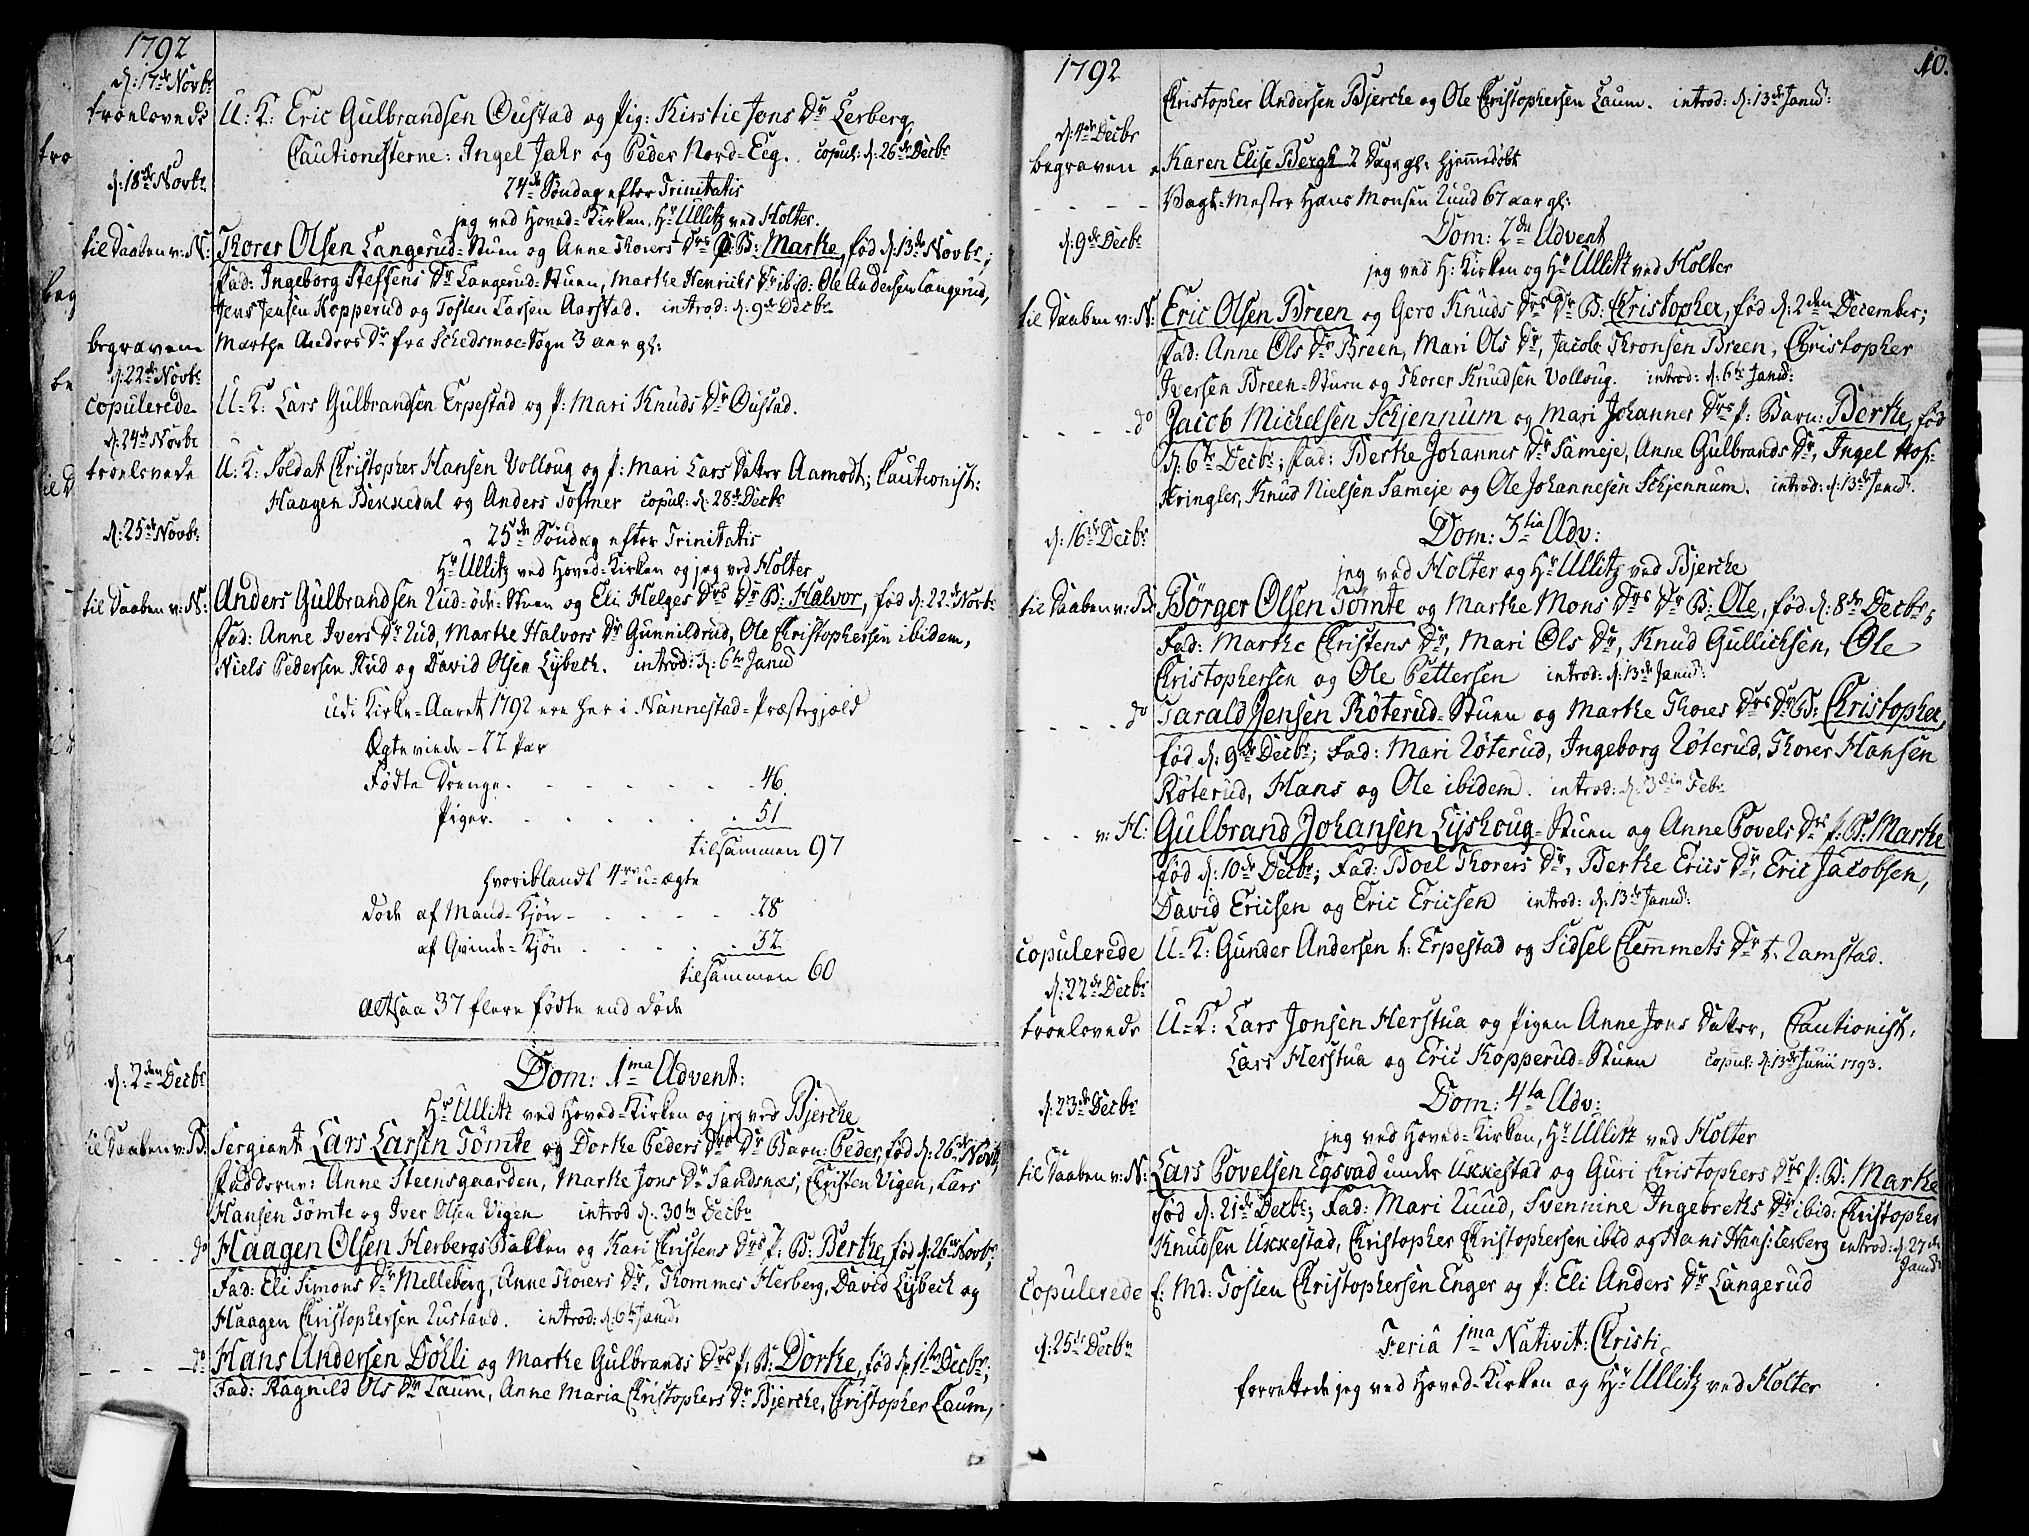 1792
d: 17de Novbr
troelovede U: K: Eric Gulbrandsen Oustad og Pig: Kirstie Jons Dr Lerberg,
Cautionisterne: Ingel Jahr og Peder Nord-Eeg. copul: d: 26de Decbr
d: 18de Novbr 24de Søndag efter Trinitatis
jeg ved Hoved-Kirken, Hr Ullitz ved Holter.
til Daaben v: N: Thorer Olsen Langerud-Stuen og Anne Thorers Drs P: B: Marthe, fød d: 13de Novbr;
Fad: Ingeborg Steffens Dr Langerud-Stuen, Marthe Henrichs Dr ibid: Ole Andersen Langerud,
Jens Jensen Kopperud og Tosten Larsen Aarstad. introd: d: 9de Decbr
begraven Marthe Anders Dr fra Schedsmoe-Sogn 3 aar gl:
d: 22de Novbr
copulerede U-K: Lars Gulbrandsen Erpestad og P: Mari Knuds Dr Oustad.
d: 24de Novbr
troelovede U: K: Soldat Christopher Hansen Volloug og P: Mari Lars Datter Aamodt; Cautionist:
Haagen Bekkedal og Anders Toftner copul: d: 28de Decbr
d: 25de Novbr 25de Søndag efter Trinitatis
Hr Ullitz ved Hoved-Kirken og jeg ved Holter
til Daaben v: N: Anders Gulbrandsen Rud-øde-Stuen og Eli Helges Drs Dr B: Halvor, fød d: 22de Novbr
Fad: Anne Ivers Dr Rud, Marthe Halvors Dr Gunnildrud, Ole Christophersen ibidem,
Niels Pedersen Rud og David Olsen Lybech. introd: d: 6te Janu
udi Kirke-Aaret 1792 ere her i Nannestad-Præstegjæld
Ægteviede - 22 Par
Fødte Drenge. 46.
Piger. 51
tilsammen 97
hvoriblandt 4re u-ægte
døde af Mand-Kjøn - 28
af Qvinde-Kjøn 32
tilsammen 60
altsaa 37 flere fødte end døde
d: 2den Decbr Dom: 1ma Advent:
Hr Ullitz ved Hoved-Kirken og jeg ved Bjerche
til Daaben v: B: Sergeant Lars Larsen Tömte og Dorthe Peders Drs Dr Barn: Peder, fød d: 26de Novbr
Faddere: Anne Steensgaarden, Marthe Jons Dr Sandsnæs, Christen Vigen, Lars
Hansen Tömte og Iver Olsen Vigen introd d: 30te Decbr
do Haagen Olsen HerbergsBakken og Kari Christens Drs P: B: Berthe, fød d: 26de Novbr;
Fad: Eli Simons Dr Melleberg, Anne Thorers Dr, Thommes Herberg, David Lybech og
Haagen Christophersen Rustand. introd: d: 6te Janu:
do Hans Andersen Döhli og Marthe Gulbrands Drs P: B: Dorthe, fød d: 1ste Decbr;
Fad: Ragnild Ols Dr Laum, Anne Maria Christophers Dr Bjerche, Christopher Laum,
1792 10.
Christopher Andersen Bjerche og Ole Christophersen Laum. introd: d: 13de Janu:
d: 4de Decbr
begraven Karen Elise Bergh 2 Dage gl: hjemmedøbt
Vagt-Mester Hans Monsen Ruud 67 aar gl:
d: 9de Decbr Dom: 2da Advent
jeg ved H: Kirken og Hr Ullitz ved Holter
til Daaben v: N: Eric Olsen Breen og Goro Knuds Drs Dr B: Christopher, fød d: 2den December;
Fad: Anne Ols Dr Breen, Mari Ols Dr, Jacob Thronsen Breen, Christopher
Iversen Breen-Stuen og Thorer Knudsen Volloug. introd: d: 6te Janu:
do Jacob Michelsen Schjennum og Mari Johannes Drs P: Barn: Berthe, fød
d: 6te Decbr; Fad: Berthe Johannes Dr Sameje, Anne Gulbrands Dr, Ingel Hof-
Kringler, Knud Nielsen Sameje og Ole Johannesen Schjennum. introd: d: 13de Janu:
d: 16de Decbr Dom: 3tia Adv:
jeg ved Holter og Hr Ullitz ved Bjerche
til Daaben v: B: Börger Olsen Tömte og Marthe Mons Drs Dr B: Ole, fød d: 8de Decbr;
Fad: Marthe Christens Dr, Mari Ols Dr, Knud Gullichsen, Ole
Christophersen og Ole Pettersen introd: d: 13de Janu:
do Tarald Jensen Röterud-Stuen og Marthe Thores Drs Dr B: Christopher,
fød d: 9de Decbr; Fad: Mari Röterud, Ingeborg Röterud, Thorer Hansen
Röterud, Hans og Ole ibidem. introd: d: 3die Febr
v: H: Gulbrand Johansen Lyshoug-Stuen og Anne Povels Drs P: B: Marthe
fød d: 10de Decbr; Fad: Boel Thorers Dr, Berthe Erics Dr, Eric Jacobsen,
David Ericsen og Eric Ericsen introd: d: 13de Janu:
copulerede U-K: Gunder Andersen t: Erpestad og Sidsel Clemmets Dr t: Ramstad.
d: 22de Decbr
troelovede U-K: Lars Jonsen Herstua og Pigen Anne Jons Datter, Cautionist,
Lars Herstua og Eric Kopperud-Stuen copul: d: 13de Junii 1793.
d: 23de Decbr Dom: 4ta Adv:
jeg ved Hoved-Kirken, Hr Ullitz ved Holter
til Daaben v: N: Lars Povelsen Egsvad under Ukkestad og Guri Christophers Drs P: B: Marthe
fød d: 21de Decbr; Fad: Mari Ruud, Svennine Ingebreths Dr ibid: Christopher
Knudsen Ukkestad, Christopher Christophersen ibid og Hans Hans: Lerberg introd: d: 27de
Janu:
Copulerede E: Md: Tosten Christophersen Enger og P: Eli Anders Dr Langerud
d: 25de Decbr Feria 1ma Nativit: Christi,
forrettede jeg ved Hoved-Kirken og Hr Ullitz ved Holter